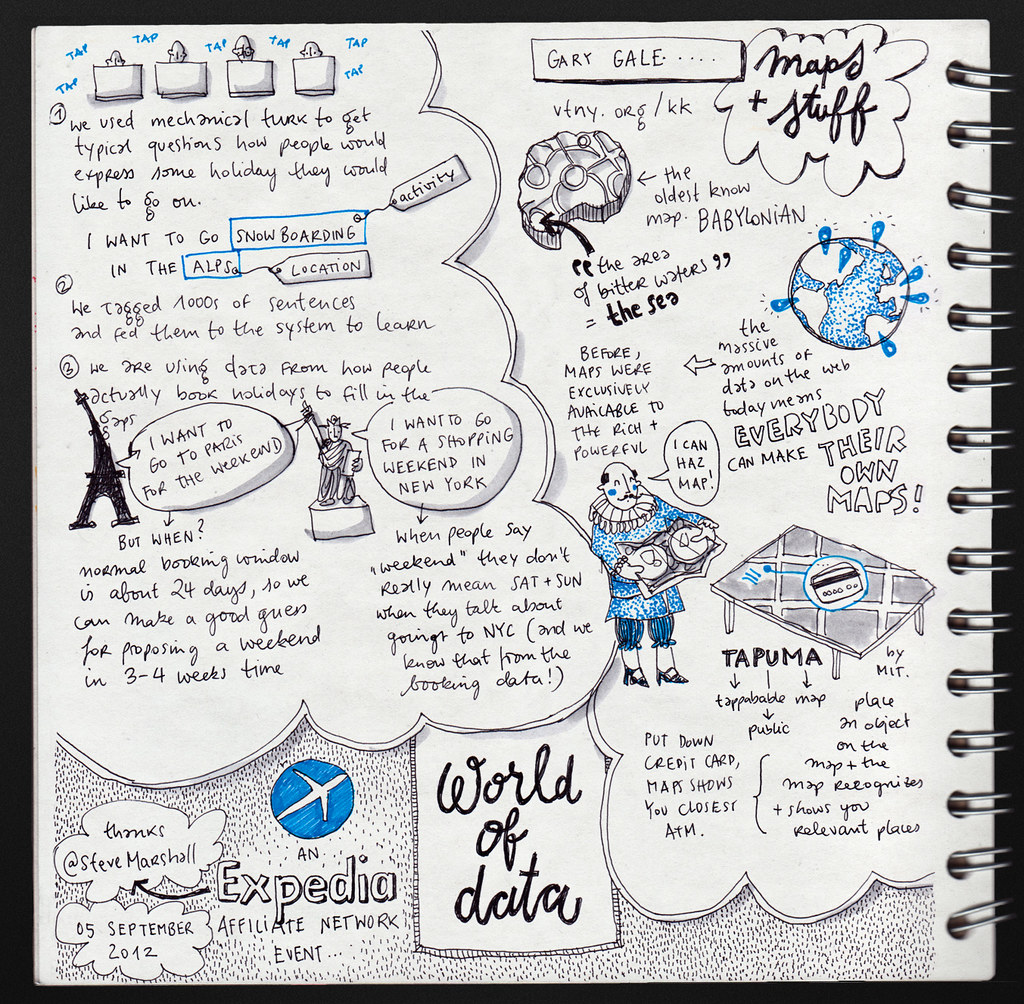 TAP
TAP
TAP
TAP
TAP
TAP
TAP
① we used mechanical turk to get
typical questions how people would
express some holiday they would
like to go on.
activity
I WANT TO GO SNOWBOARDING
IN THE ALPS
LOCATION
② We tagged 1000s of sentences
and fed them to the system to learn
③ we are using data from how people
actually book holidays to fill in the
gaps
I WANT TO
GO TO PARIS
FOR THE WEEKEND
BUT WHEN?
normal booking window
is about 24 days, so we
can make a good guess
for proposing a weekend
in 3-4 weeks time
I WANT TO GO
FOR A SHOPPING
WEEKEND IN
NEW YORK
when people say
„weekend" they don't
really mean SAT + SUN
when they talk about
goingt to NYC (and we
know that from the
booking data!)
GARY GALE.....
maps
+ stuff
vtny.org/kk
← the
oldest know
map. BABYLONIAN
"the area
of bitter waters"
= the sea
the
massive
amounts of
data on the web
today means
EVERYBODY
CAN MAKE THEIR
OWN
MAPS!
BEFORE,
MAPS WERE
EXCLUSIVELY
AVAICABLE TO
THE RICH +
POWERFUL
I CAN
HAZ
MAP!
TAPUMA
by
MIT.
tappabable map
public
place
an object
on the
map + the
map recognizes
+ shows you
relevant places
PUT DOWN
CREDIT CARD,
MAPS SHOWS
YOU CLOSEST
ATM.
World
of
data
AN
Expedia
AFFILIATE NETWORK
EVENT...
thanks
@SteveMarshall
05 SEPTEMBER
2012